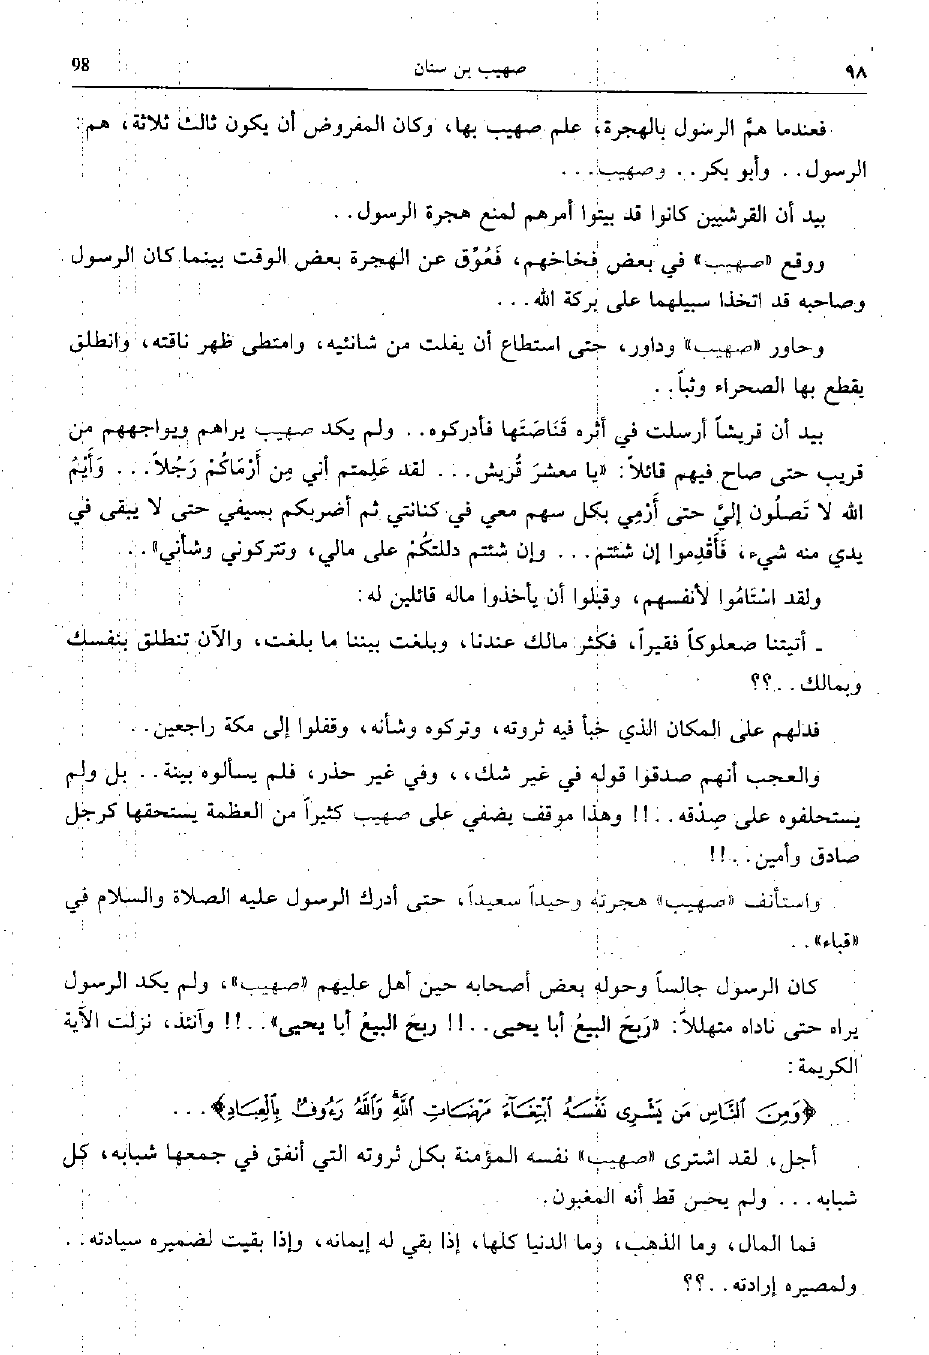 ٩٨ صهيب بن سنان 98
فعندما همَّ الرسول بالهجرة، علم صهيب بها، وكان المفروض أن يكون ثالث ثلاثة، هم:
الرسول.. وأبو بكر.. وصهيب...
بيد أن القرشيين كانوا قد بيتوا أمرهم لمنع هجرة الرسول..
ووقع «صهيب» في بعض فخاخهم، فَعُوِّق عن الهجرة بعض الوقت بينما كان الرسول
وصاحبه قد اتخذا سبيلهما على بركة الله...
وحاور «صهيب» وداور، حتى استطاع أن يفلت من شانئيه، وامتطى ظهر ناقته، وانطلق
يقطع بها الصحراء وثباً..
بيد أن قريشاً أرسلت في أثره قَنَاصَتَها فأدركوه.. ولم يكد صهيب يراهم ويواجههم من
قريب حتى صاح فيهم قائلاً: «يا معشرَ قُريش... لقد عَلِمتم أني مِن أَرْمَاكُمْ رَجُلاً... وَأَيْمُ
الله لا تَصلُون إليَّ حتى أَرْمِي بكل سهم معي في كنانتي ثم أضربكم بسيفي حتى لا يبقى في
يدي منه شيء، فَأَقْدِموا إن شئتم... وإن شئتم دللتكُمْ على مالي، وتتركوني وشأني»..
ولقد اسْتَامُوا لأنفسهم، وقبلوا أن يأخذوا ماله قائلين له:
ـ أتيتنا صعلوكاً فقيراً، فكثر مالك عندنا، وبلغت بيننا ما بلغت، والآن تنطلق بنفسك
وبمالك..؟؟
فدلهم على المكان الذي خبأ فيه ثروته، وتركوه وشأنه، وقفلوا إلى مكة راجعين..
والعجب أنهم صدقوا قوله في غير شك،، وفي غير حذر، فلم يسألوه بينة.. بل ولم
يستحلفوه على صِدْقه..!! وهذا موقف يضفي على صهيب كثيراً من العظمة يستحقها كرجل
صادق وأمين..!!
واستأنف «صهيب» هجرته وحيداً سعيداً، حتى أدرك الرسول عليه الصلاة والسلام في
«قباء»..
كان الرسول جالساً وحوله بعض أصحابه حين أهل عليهم «صهيب»، ولم يكد الرسول
يراه حتى ناداه متهللاً: «رَبحَ البيعُ أبا يحيى..!! ربحَ البيعُ أبا يحيى»..!! وآنئذ، نزلت الآية
الكريمة:
﴿وَمِنَ ٱلنَّاسِ مَن يَشْرِى نَفْسَهُ ٱبْتِغَآءَ مَرْضَاتِ ٱللَّهِ وَٱللَّهُ رَءُوفٌ بِٱلْعِبَادِ﴾...
أجل، لقد اشترى «صهيب» نفسه المؤمنة بكل ثروته التي أنفق في جمعها شبابه، كل
شبابه... ولم يحس قط أنه المغبون.
فما المال، وما الذهب، وما الدنيا كلها، إذا بقي له إيمانه، وإذا بقيت لضميره سيادته..
ولمصيره إرادته..؟؟